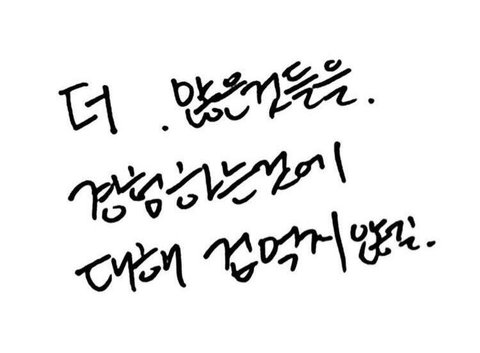 더 . 많은것들을.
경험하는것에
대해 겁먹지않길.